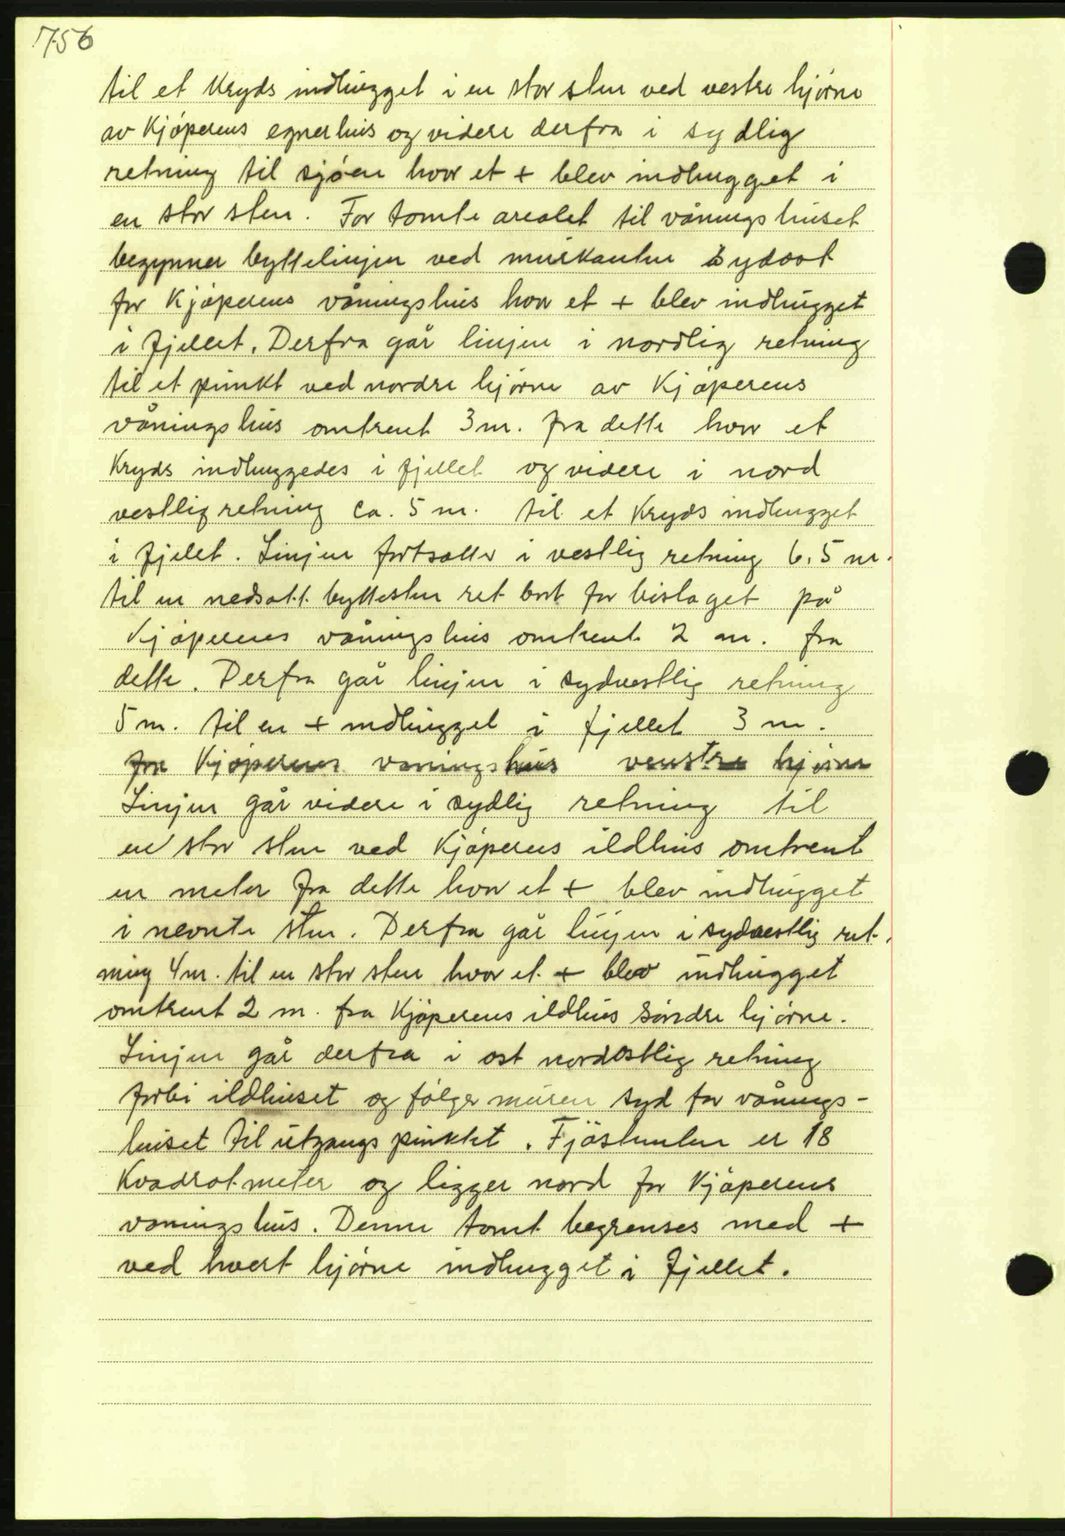 756
til et Kryds indhugget i en stor sten ved vestre hjörne
av Kjöperens egnerhus og videre derfra i sydlig
retning til sjöen hvor et + blev indhugget i
en stor sten. For tomte arealet til våningshuset
begynner byttelinjen ved murkanten Sydost
for Kjöperens våningshus hvor et + blev indhugget
i fjellet. Derfra går linjen i nordlig retning
til et punkt ved nordre hjörne av Kjöperens
våningshus omtrent 3 m. fra dette hvor et
Kryds indhuggedes i fjellet og videre i nord
vestlig retning ca. 5 m. til et Kryds indhugget
i fjelet. Linjen fortsætter i vestlig retning 6,5 m.
til en nedsatt byttesten ret bort for bislaget på
Kjöperens våningshus omtrent 2 m. fra
dette. Derfra går linjen i sydvestlig retning
5 m. til en + indhugget i fjellet 3 m.
fra Kjöperens vaningshus venstre hjörne
Linjen går videre i sydlig retning til
en stor sten ved Kjöperens ildhus omtrent
en meter fra dette hvor et + blev indhugget
i nevnte sten. Derfra går linjen i sydvestlig ret-
ning 4 m. til en stor sten hvor et + blev indhugget
omtrent 2 m. fra Kjöperens ildhus Söndre hjörne.
Linjen går derfra i ost nordostlig retning
forbi ildhuset og fölger muren syd for vånings-
huset til utgangs punktet. Fjöstomten er 18
Kvadratmeter og ligger nord for Kjöperens
vaningshus. Denne tomt begrenses med +
ved hvert hjörne indhugget i fjellet.